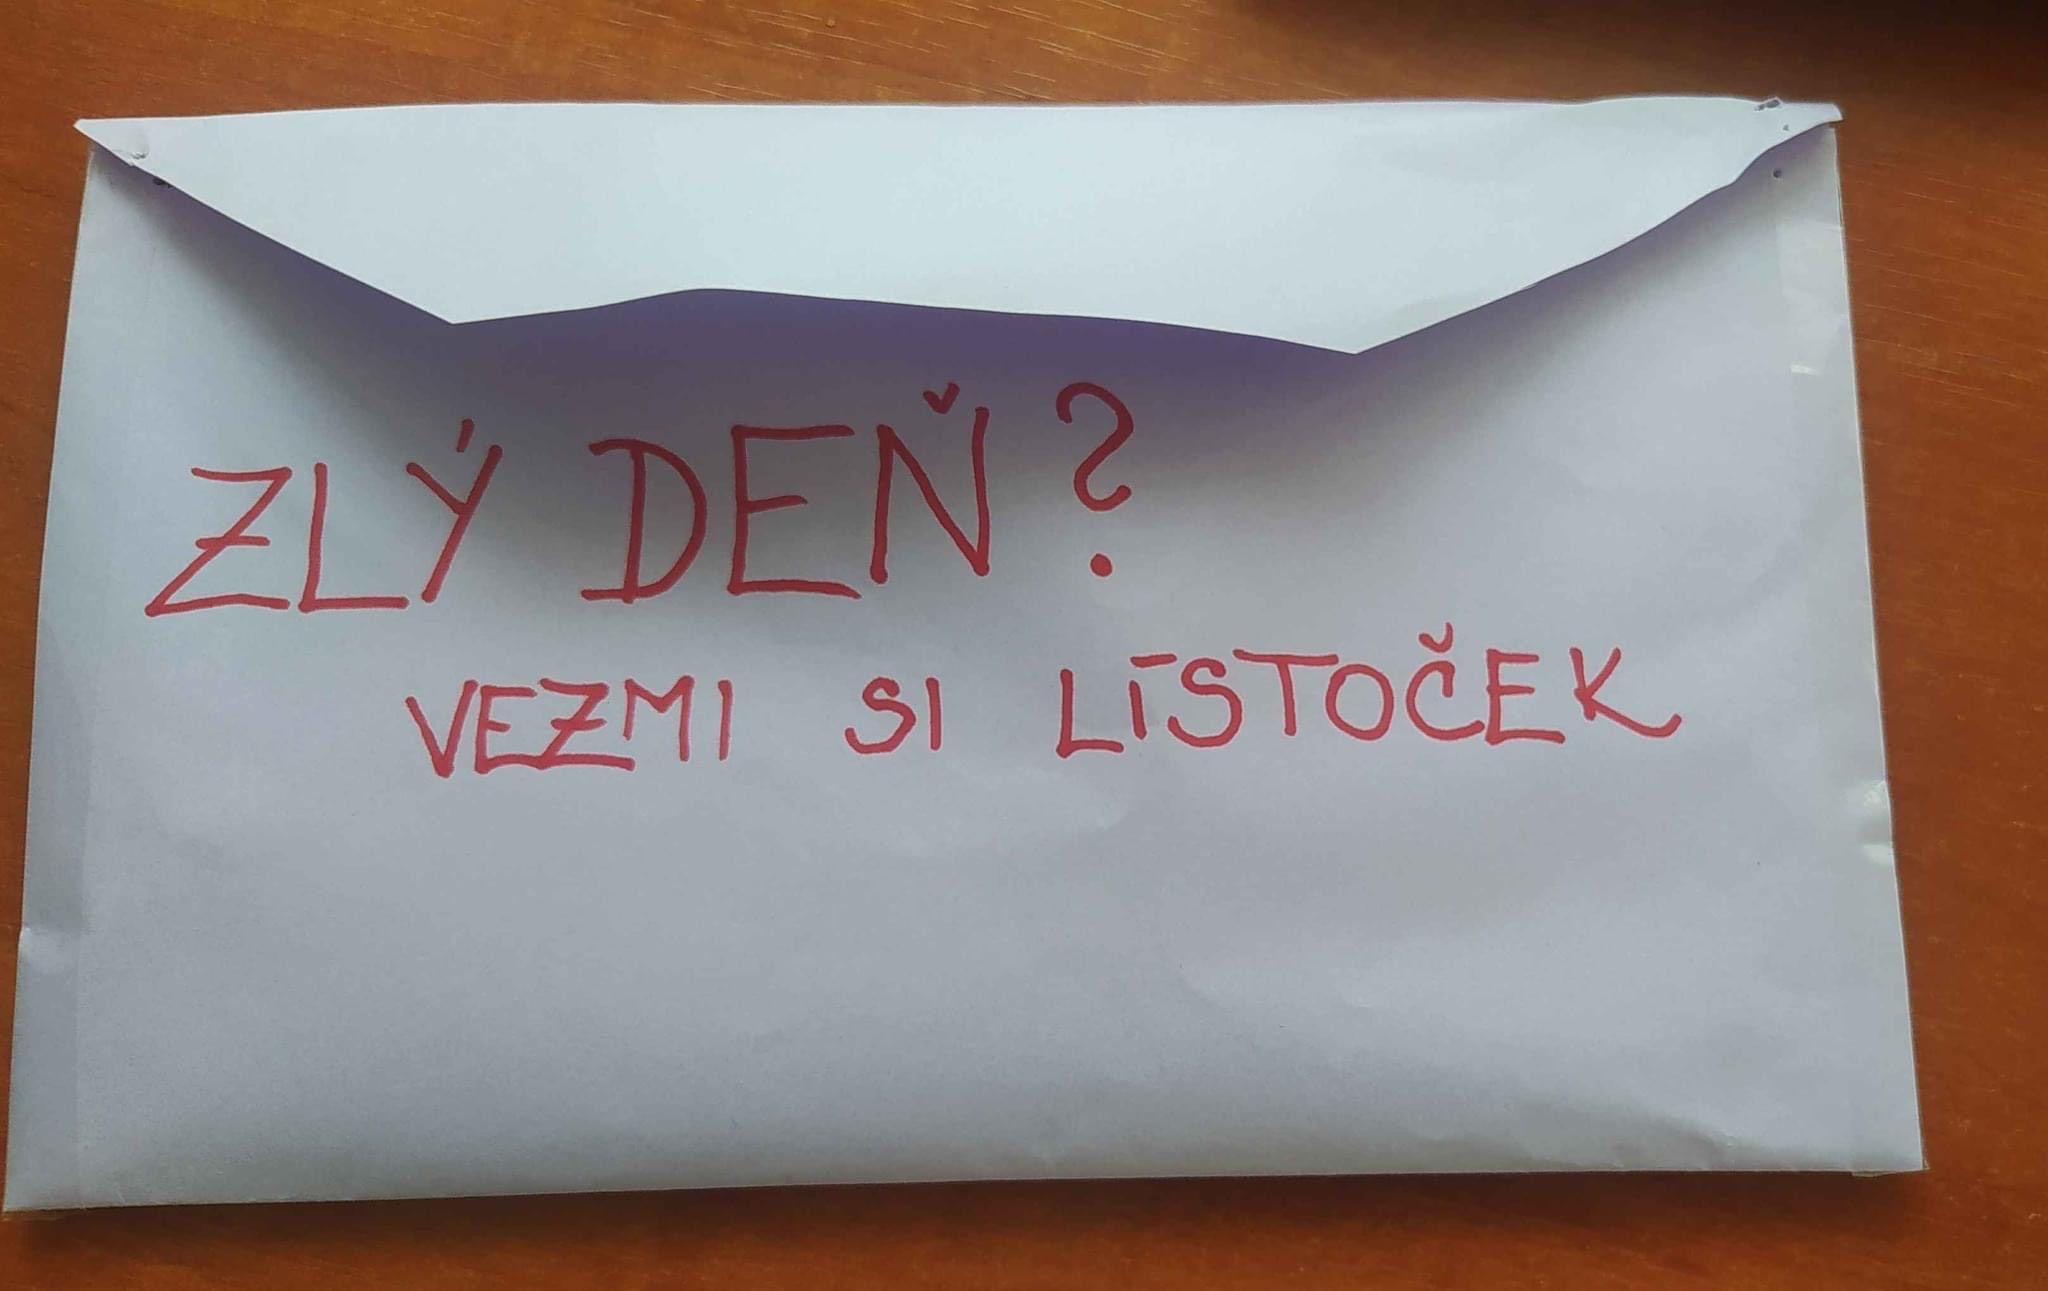 ZLÝ DEŇ?
VEZMI SI LÍSTOČEK